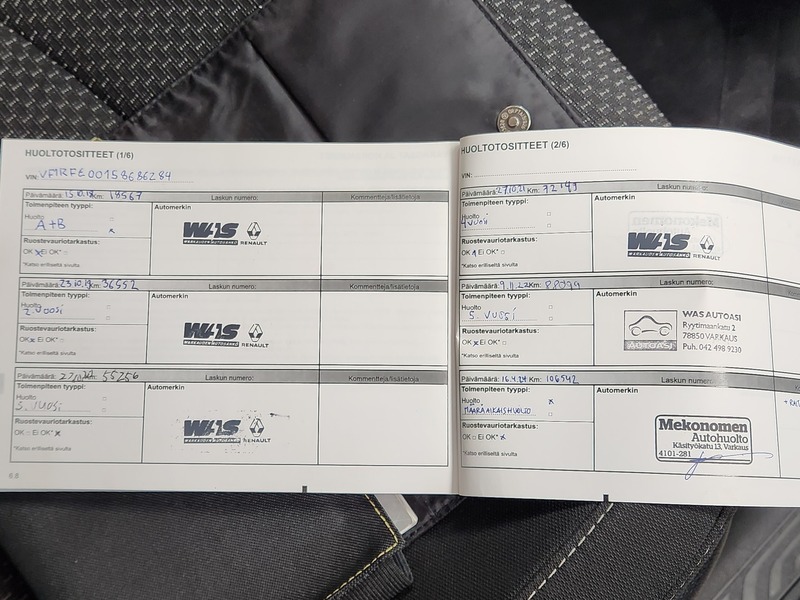 HUOLTOTOSITTEET (1/6)
VIN:
Päivämäärä: Km: 18567 Laskun numero: Kommentteja/lisätietoja
Toimenpiteen tyyppi: Automerkin
Huolto
A+B
WAS
RENAULT
Ruostevauriotarkastus:
OK Ei OK*
*Katso erilliseltä sivulta
Päivämäärä: Km: 36552 Laskun numero: Kommentteja/lisätietoja
Toimenpiteen tyyppi: Automerkin
Huolto
2. VUOSI
WAS
RENAULT
Ruostevauriotarkastus:
OK Ei OK*
*Katso erilliseltä sivulta
Päivämäärä: Km: 55256 Laskun numero: Kommentteja/lisätietoja
Toimenpiteen tyyppi: Automerkin
Huolto
3. VUOSI
WAS
RENAULT
Ruostevauriotarkastus:
OK Ei OK*
*Katso erilliseltä sivulta
6.8
HUOLTOTOSITTEET (2/6)
VIN:
Päivämäärä: 27.10.21 Km: Laskun numero:
Toimenpiteen tyyppi: Automerkin
Huolto
4 VUOSI
WAS
RENAULT
Ruostevauriotarkastus:
OK Ei OK*
*Katso erilliseltä sivulta
Päivämäärä: 9.11.22 Km: Laskun numero:
Toimenpiteen tyyppi: Automerkin
Huolto
5. VUOSI
WAS AUTOASI
Ryytimaankatu 2
78850 VARKAUS
Puh. 042 498 9230
AUTOASI
Ruostevauriotarkastus:
OK Ei OK*
*Katso erilliseltä sivulta
Päivämäärä: 16.4.24 Km: 106542 Laskun numero:
Toimenpiteen tyyppi: Automerkin
Huolto
MÄÄRÄAIKAISHUOLTO
Mekonomen
Autohuolto
Käsityökatu 13, Varkaus
4101-281
Ruostevauriotarkastus:
OK Ei OK*
*Katso erilliseltä sivulta